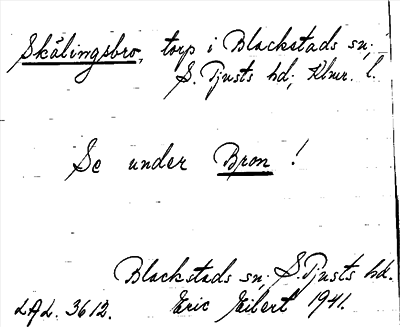 Skälingsbro, torp i Blackstads sn;
S. Tjusts hd; Klmr. l.
Se under Bron !
Blackstads sn; S. Tjusts hd.
LAL. 3612. Eric Eibert 1941.